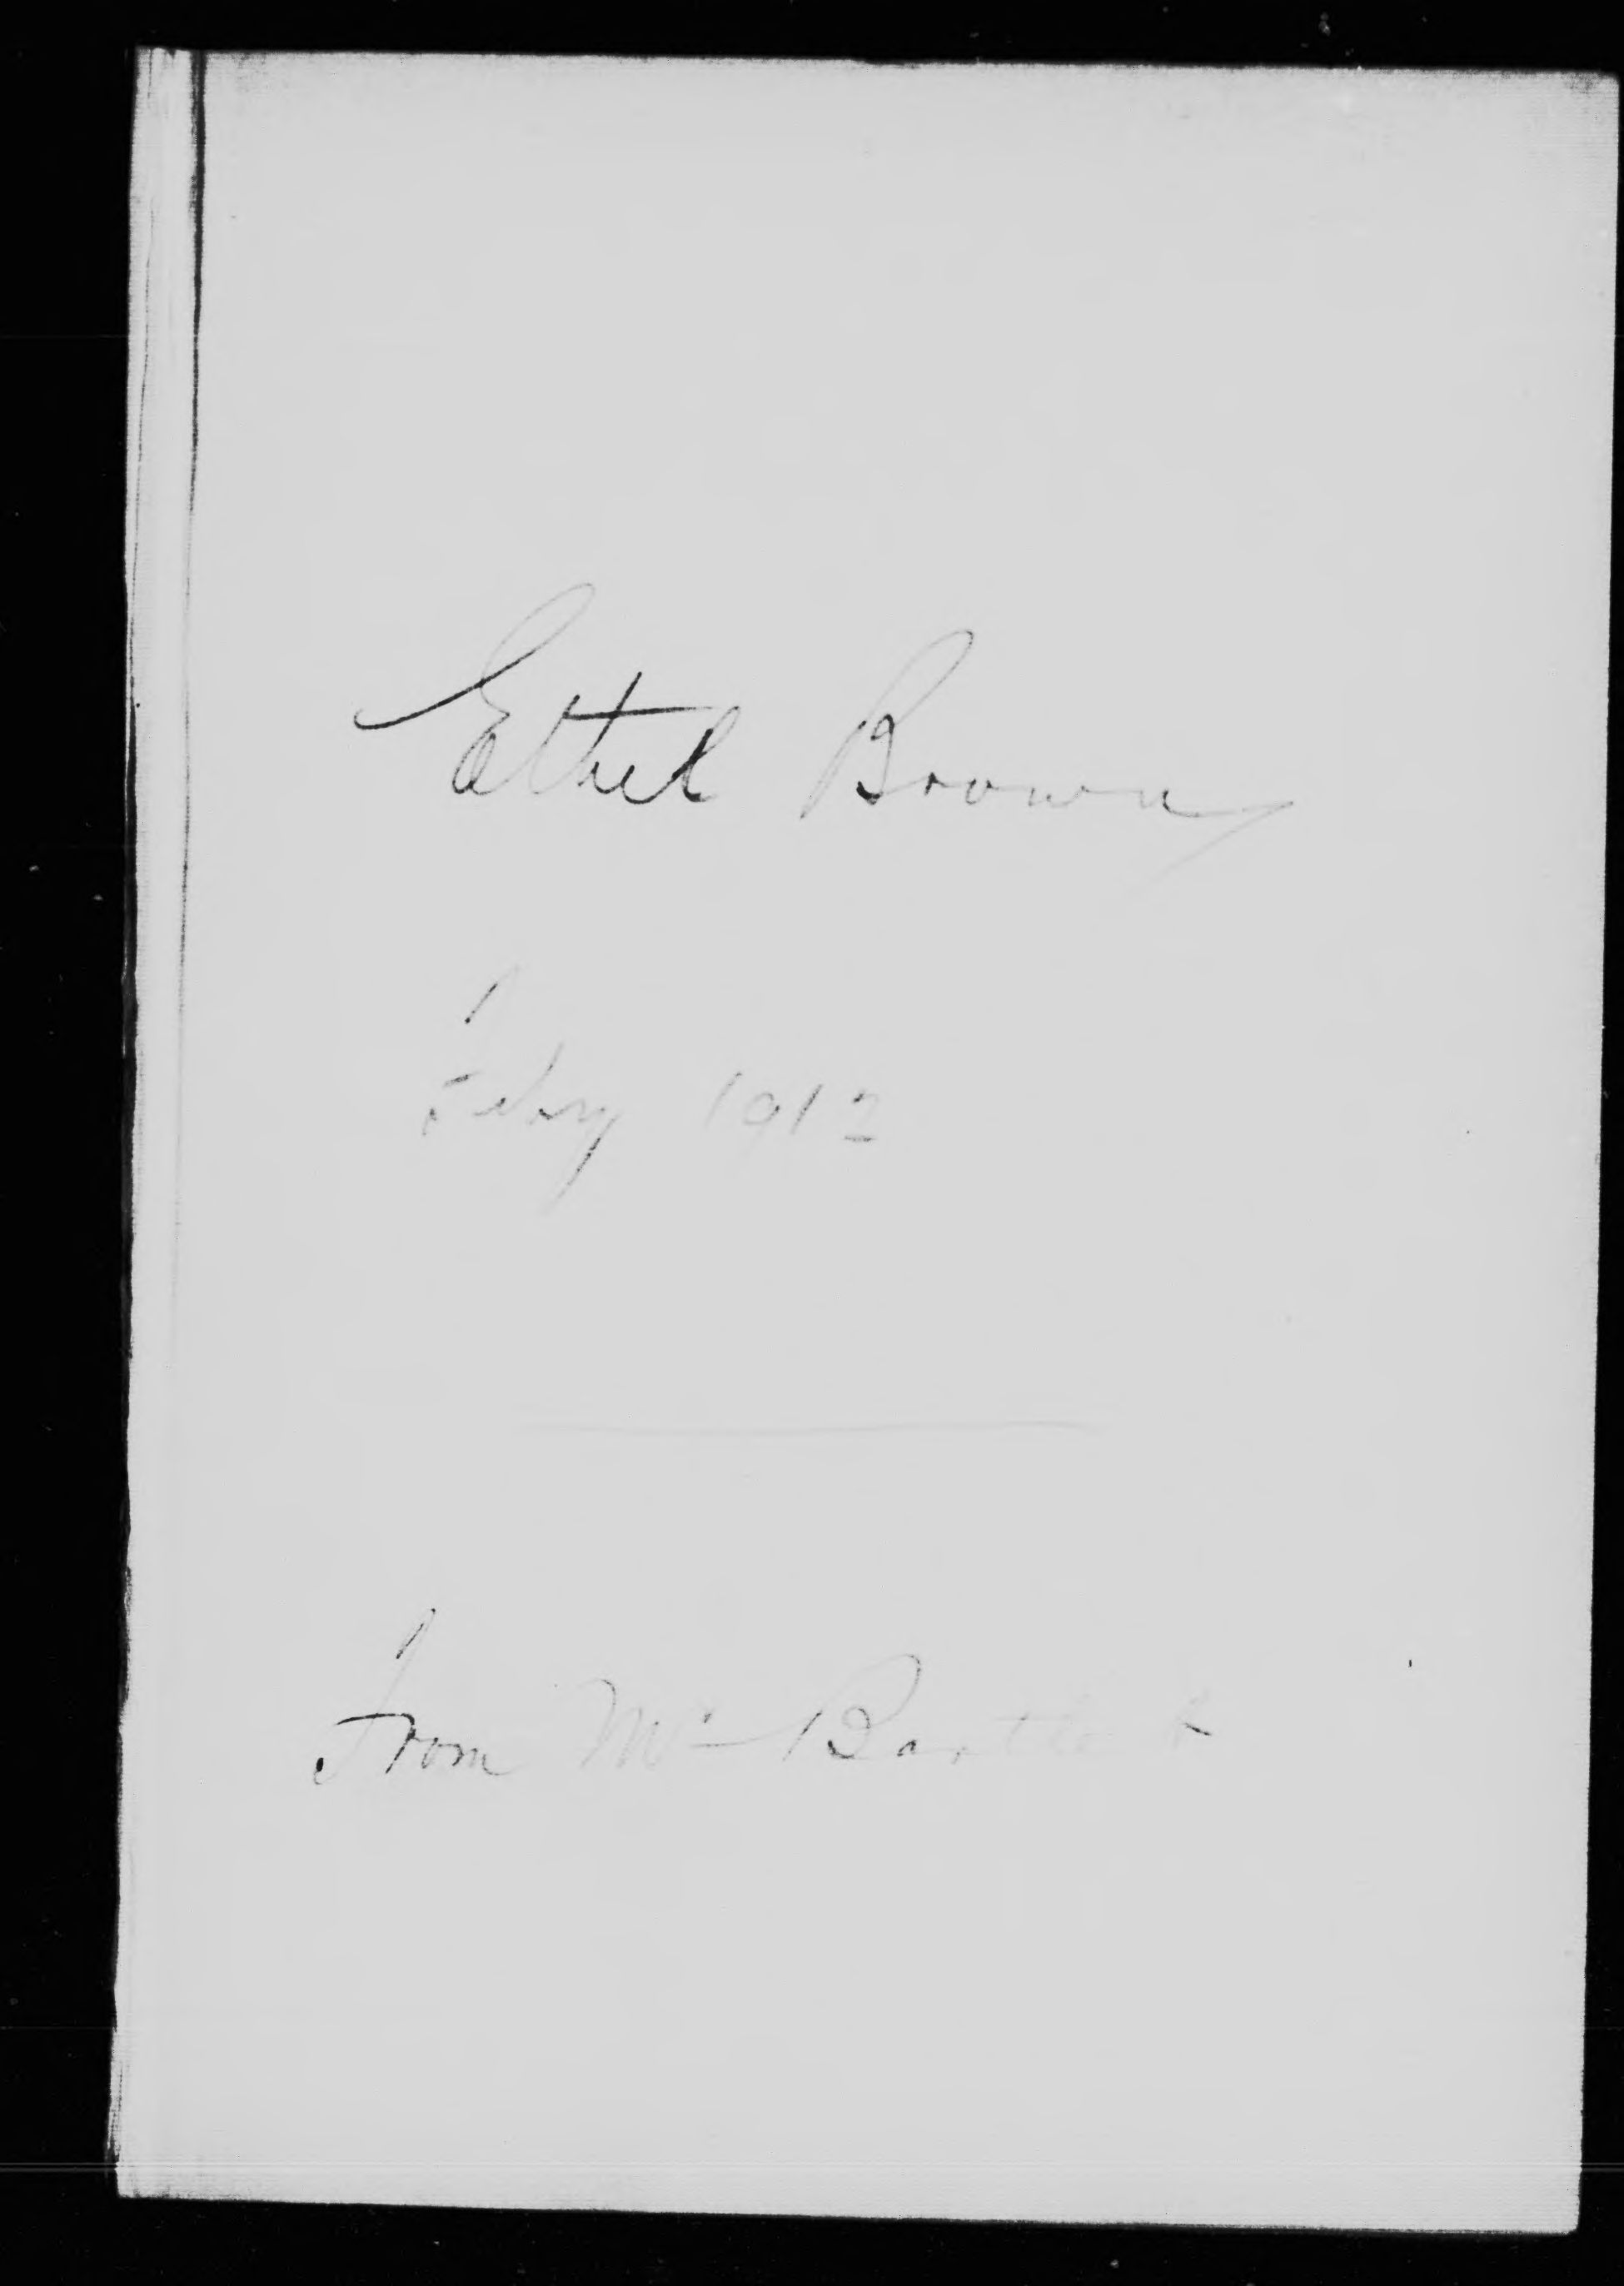 Ethel Brown
Febry 1912
From Mr Bartlett